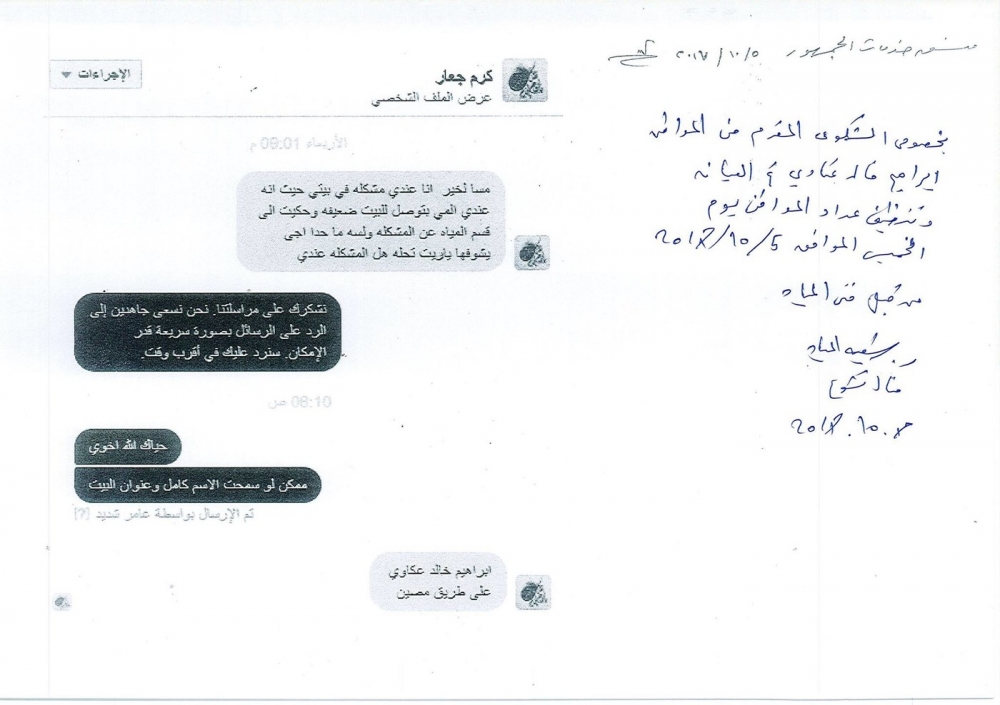 منسق خدمات الجمهور ٢٠١٧/١٠/٥
الإجراءات
كرم جعار
عرض الملف الشخصي
الأربعاء 09:01 م
مسا لخير انا عندي مشكله في بيتي حيث انه
عندي المي بتوصل للبيت ضعيفه وحكيت الى
قسم المياه عن المشكله ولسه ما حدا اجى
يشوفها ياريت تحله هل المشكله عندي
نشكرك على مراسلتنا. نحن نسعى جاهدين إلى
الرد على الرسائل بصورة سريعة قدر
الإمكان. سنرد عليك في أقرب وقت.
08:10 ص
حياك الله اخوي
ممكن لو سمحت الاسم كامل وعنوان البيت
تم الإرسال بواسطة عامر شديد [?]
ابراهيم خالد عكاوي
على طريق مصين
بخصوص الشكوى المقدم من المواطن
ابراهيم خالد عكاوي تم الصيانه
وتنظيف عداد المواطن يوم
الخميس الموافق 2017/10/5
من قبل فني المياه